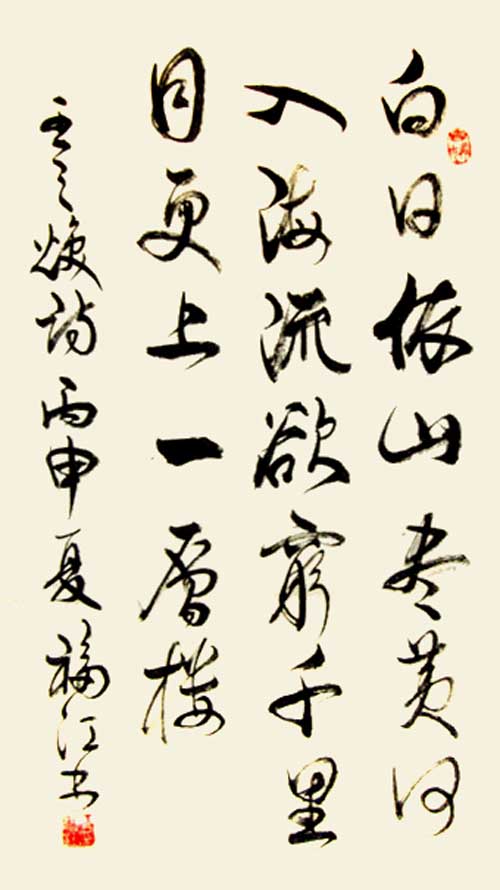 白日依山尽黄河
入海流欲穷千里
目更上一层楼
王之焕诗丙申夏福江书